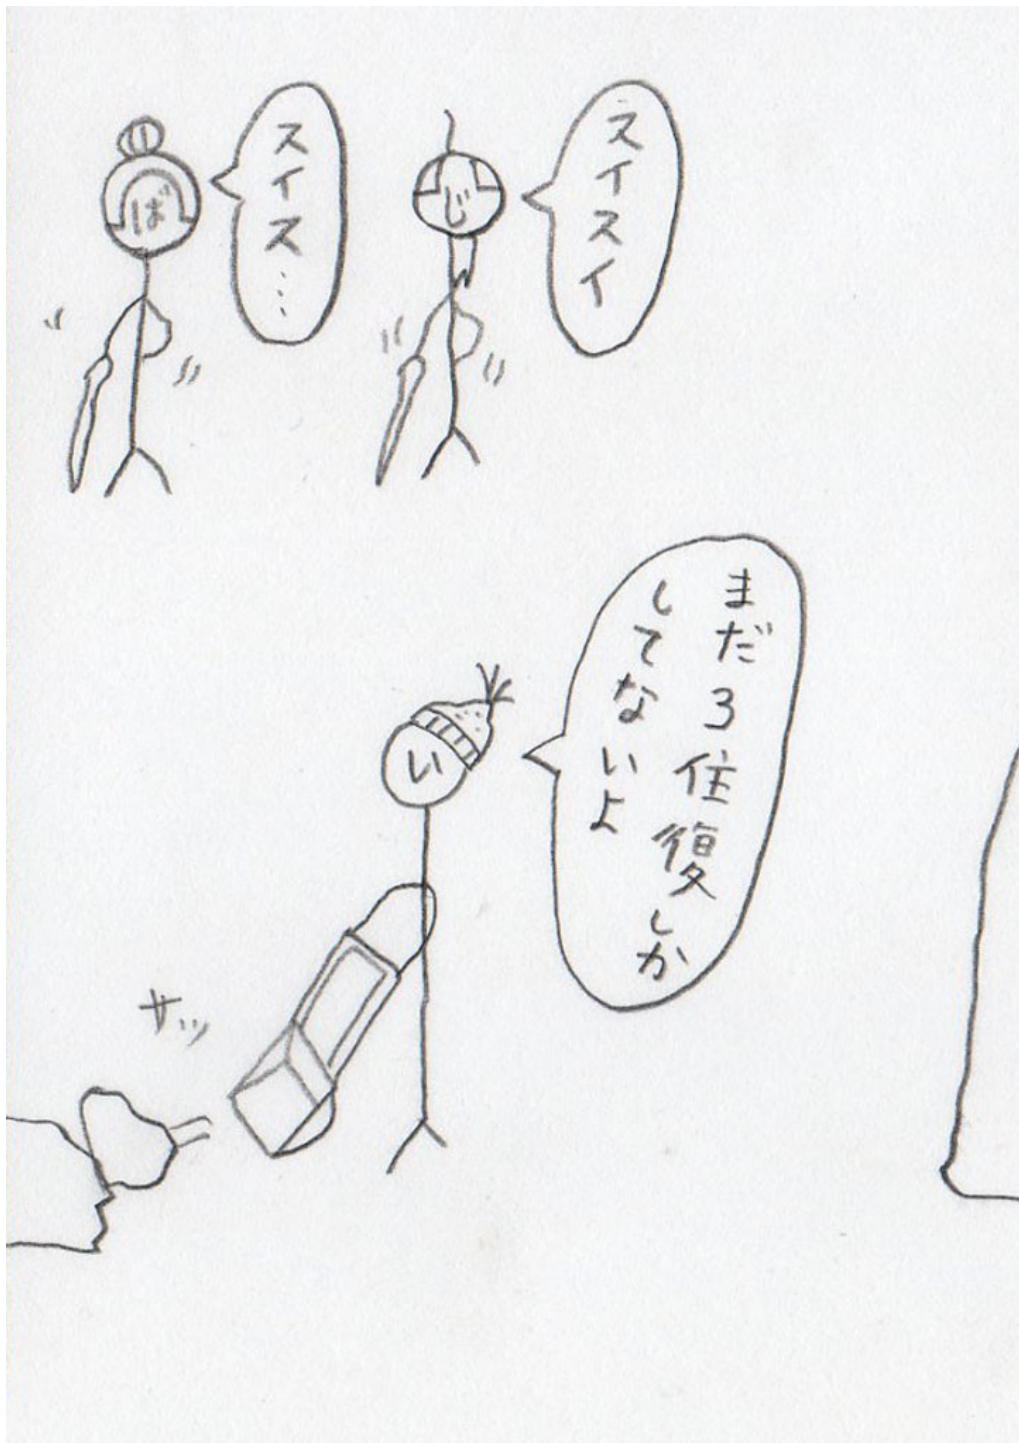 スイスイ
じ
スイス…
ば
まだ3住復しか
してないよ
い
サッ